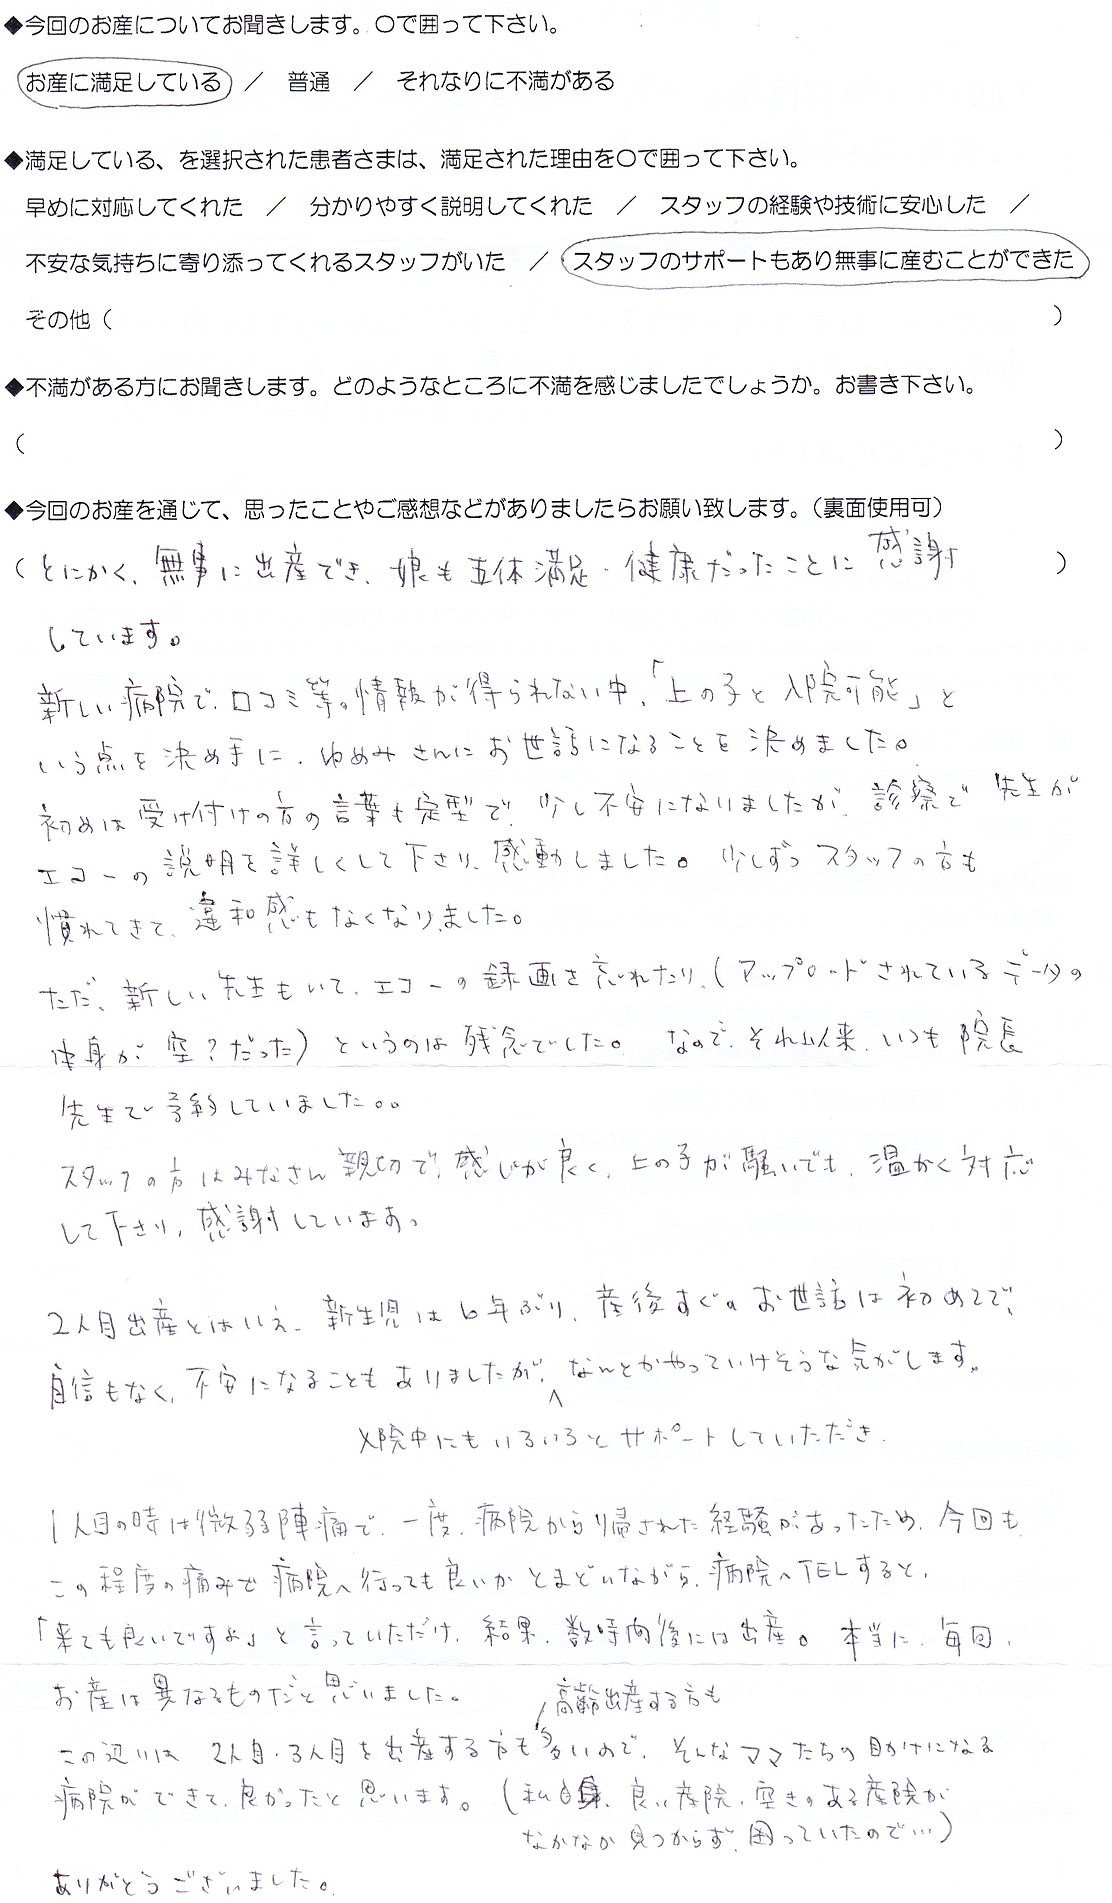 ◆今回のお産についてお聞きします。〇で囲って下さい。
お産に満足している ／ 普通 ／ それなりに不満がある
◆満足している、を選択された患者さまは、満足された理由を〇で囲って下さい。
早めに対応してくれた ／ 分かりやすく説明してくれた ／ スタッフの経験や技術に安心した ／
不安な気持ちに寄り添ってくれるスタッフがいた ／ スタッフのサポートもあり無事に産むことができた
その他（ ）
◆不満がある方にお聞きします。どのようなところに不満を感じましたでしょうか。お書き下さい。
（ ）
◆今回のお産を通じて、思ったことやご感想などがありましたらお願い致します。（裏面使用可）
（とにかく、無事に出産でき、娘も五体満足・健康だったことに感謝 ）
しています。
新しい病院で、口コミ等の情報が得られない中、「上の子と入院可能」と
いう点を決め手に、ゆめみさんにお世話になることを決めました。
初めは受け付けの方の言葉も定型で、少し不安になりましたが、診察で先生が
エコーの説明を詳しくして下さり、感動しました。少しずつスタッフの方も
慣れてきて、違和感もなくなりました。
ただ、新しい先生もいて、エコーの録画を忘れたり、（アップロードされているデータの
中身が空？だった）というのは残念でした。なので、それ以来、いつも院長
先生で予約していました。。
スタッフの方はみなさん親切で、感じが良く、上の子が騒いでも、温かく対応
して下さり、感謝しています。
2人目出産とはいえ、新生児は6年ぶり、産後すぐのお世話は初めてで、
自信もなく、不安になることもありましたが、なんとかやっていけそうな気がします。
入院中にもいろいろとサポートしていただき、
1人目の時は微弱陣痛で、一度、病院から帰された経験があったため、今回も、
この程度の痛みで病院へ行っても良いかとまどいながら、病院へTELすると、
「来ても良いですよ」と言っていただけ、結果、数時間後には出産。本当に、毎回、
お産は異なるものだと思いました。
高齢出産する方も
この辺りは、2人目・3人目を出産する方も多いので、そんなママたちの助けになる
病院ができて、良かったと思います。（私自身、良い産院、空きのある産院が
なかなか見つからず、困っていたので…）
ありがとうございました。